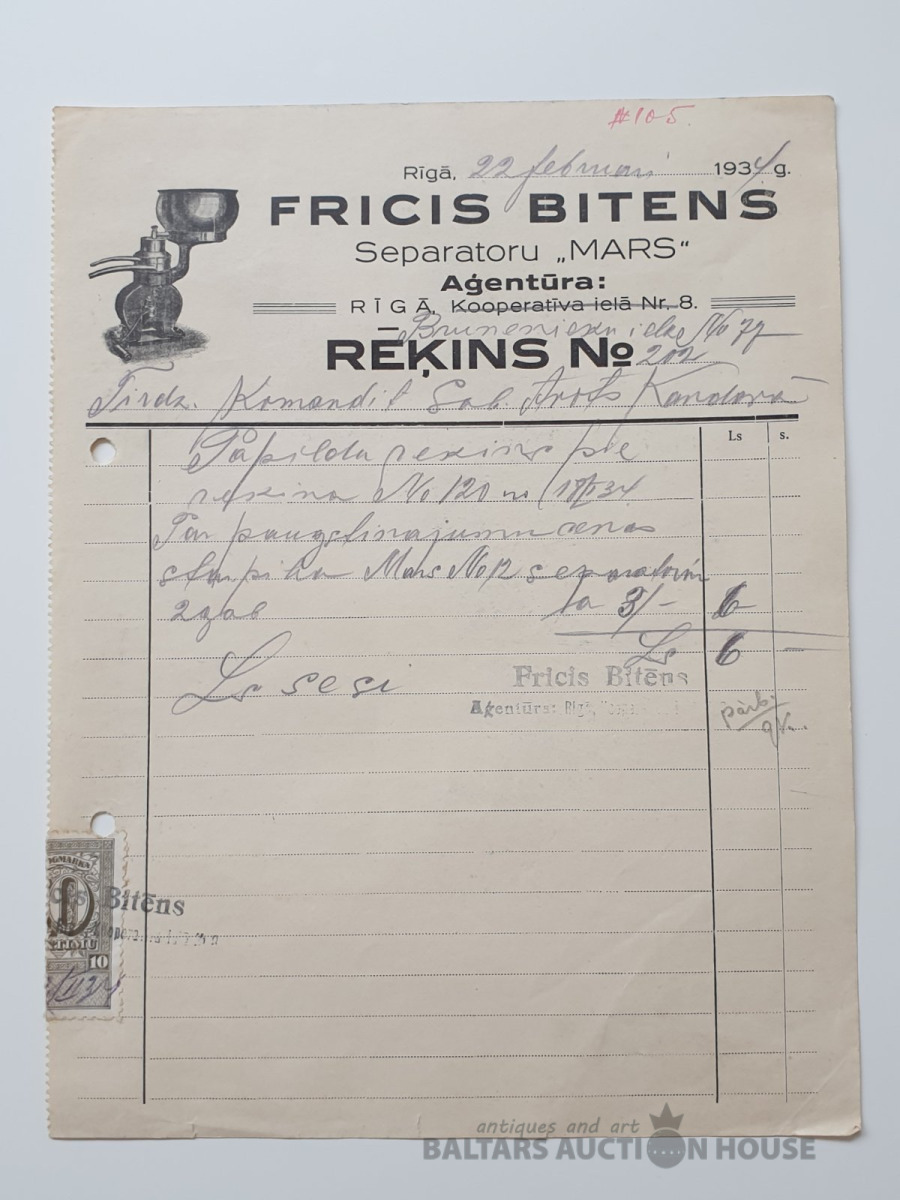 #105.
Rīgā, 22 februari 1934 g.
FRICIS BITENS
Separatoru „MARS“
Aģentūra:
RĪGĀ, Kooperatīva ielā Nr. 8.
ielā No 77
RĒĶINS No 202
Tirdz. Komandit Sab. Arots Kandavā
Ls s.
Papildu rekins pie
rekina No 120 no
Par paugstinajumu cenas
Mars No 12 separatorim
2 gab la 3/- 6
Ls 6 —
Ls sesi
Fricis Bitēns
Aģentūra: Rīgā,
pārb.
Bitēns
10
antiques and art
BALTARS AUCTION HOUSE